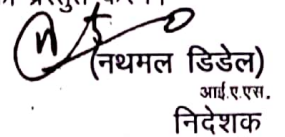 (नथमल डिडेल)
आई.ए.एस.
निदेशक